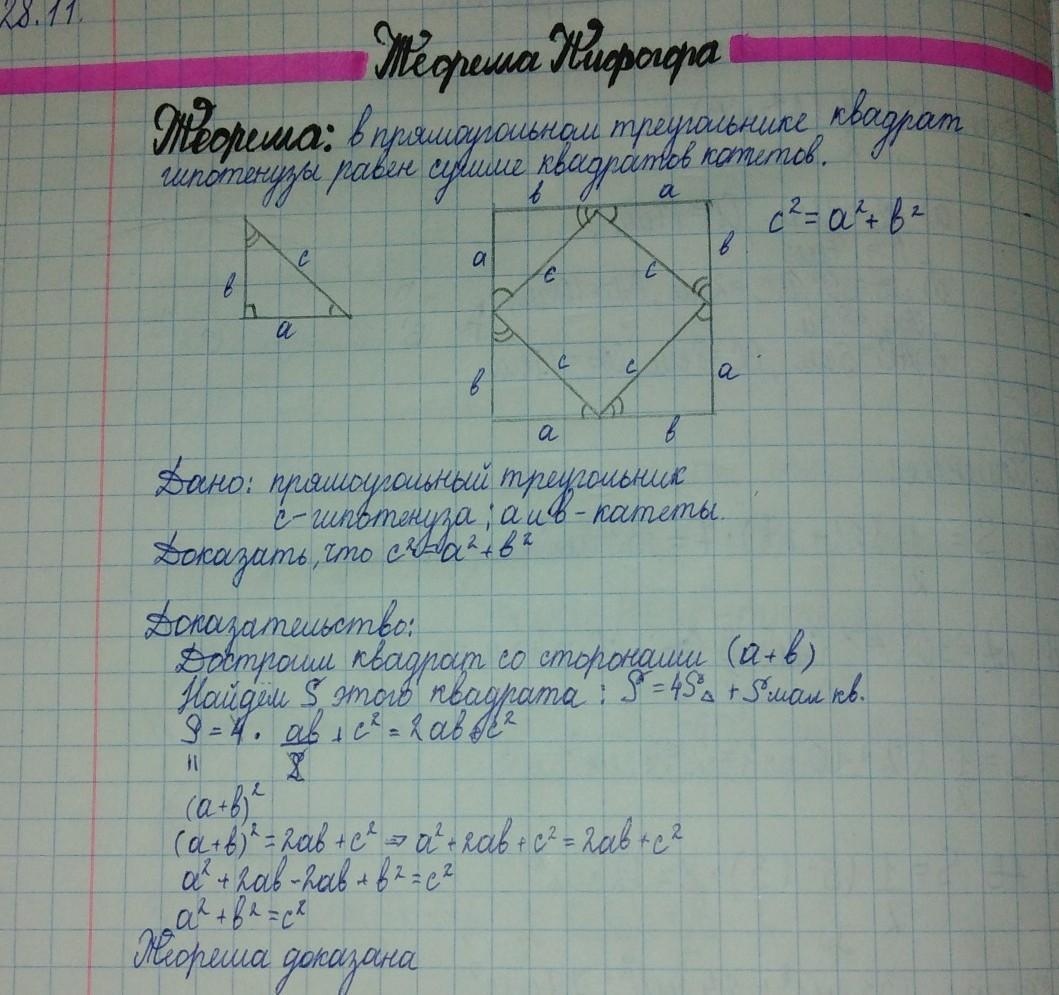 28.11.
Теорема Пифагора
Теорема: в прямоугольном треугольнике квадрат
гипотенузы равен сумме квадратов катетов.
в a
c² = a² + в²
a c c в
в c
a
в c c a
a в
Дано: прямоугольный треугольник
c - гипотенуза; a и в - катеты.
Доказать, что c² = a² + в²
Доказательство:
Достроим квадрат со сторонами (a+в)
Найдём S этого квадрата: S = 4S△ + S мал кв.
S = 4 · aв/2 + c² = 2aв + c²
"
(a+в)²
(a+в)² = 2aв + c² ⇒ a² + 2aв + c² = 2aв + c²
a² + 2aв - 2aв + в² = c²
a² + в² = c²
Теорема доказана